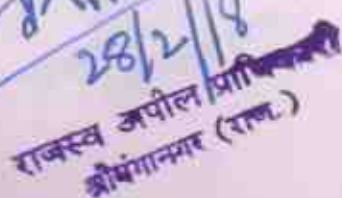 28/2/18
राजस्व अपील प्राधिकारी
श्रीगंगानगर (राज.)